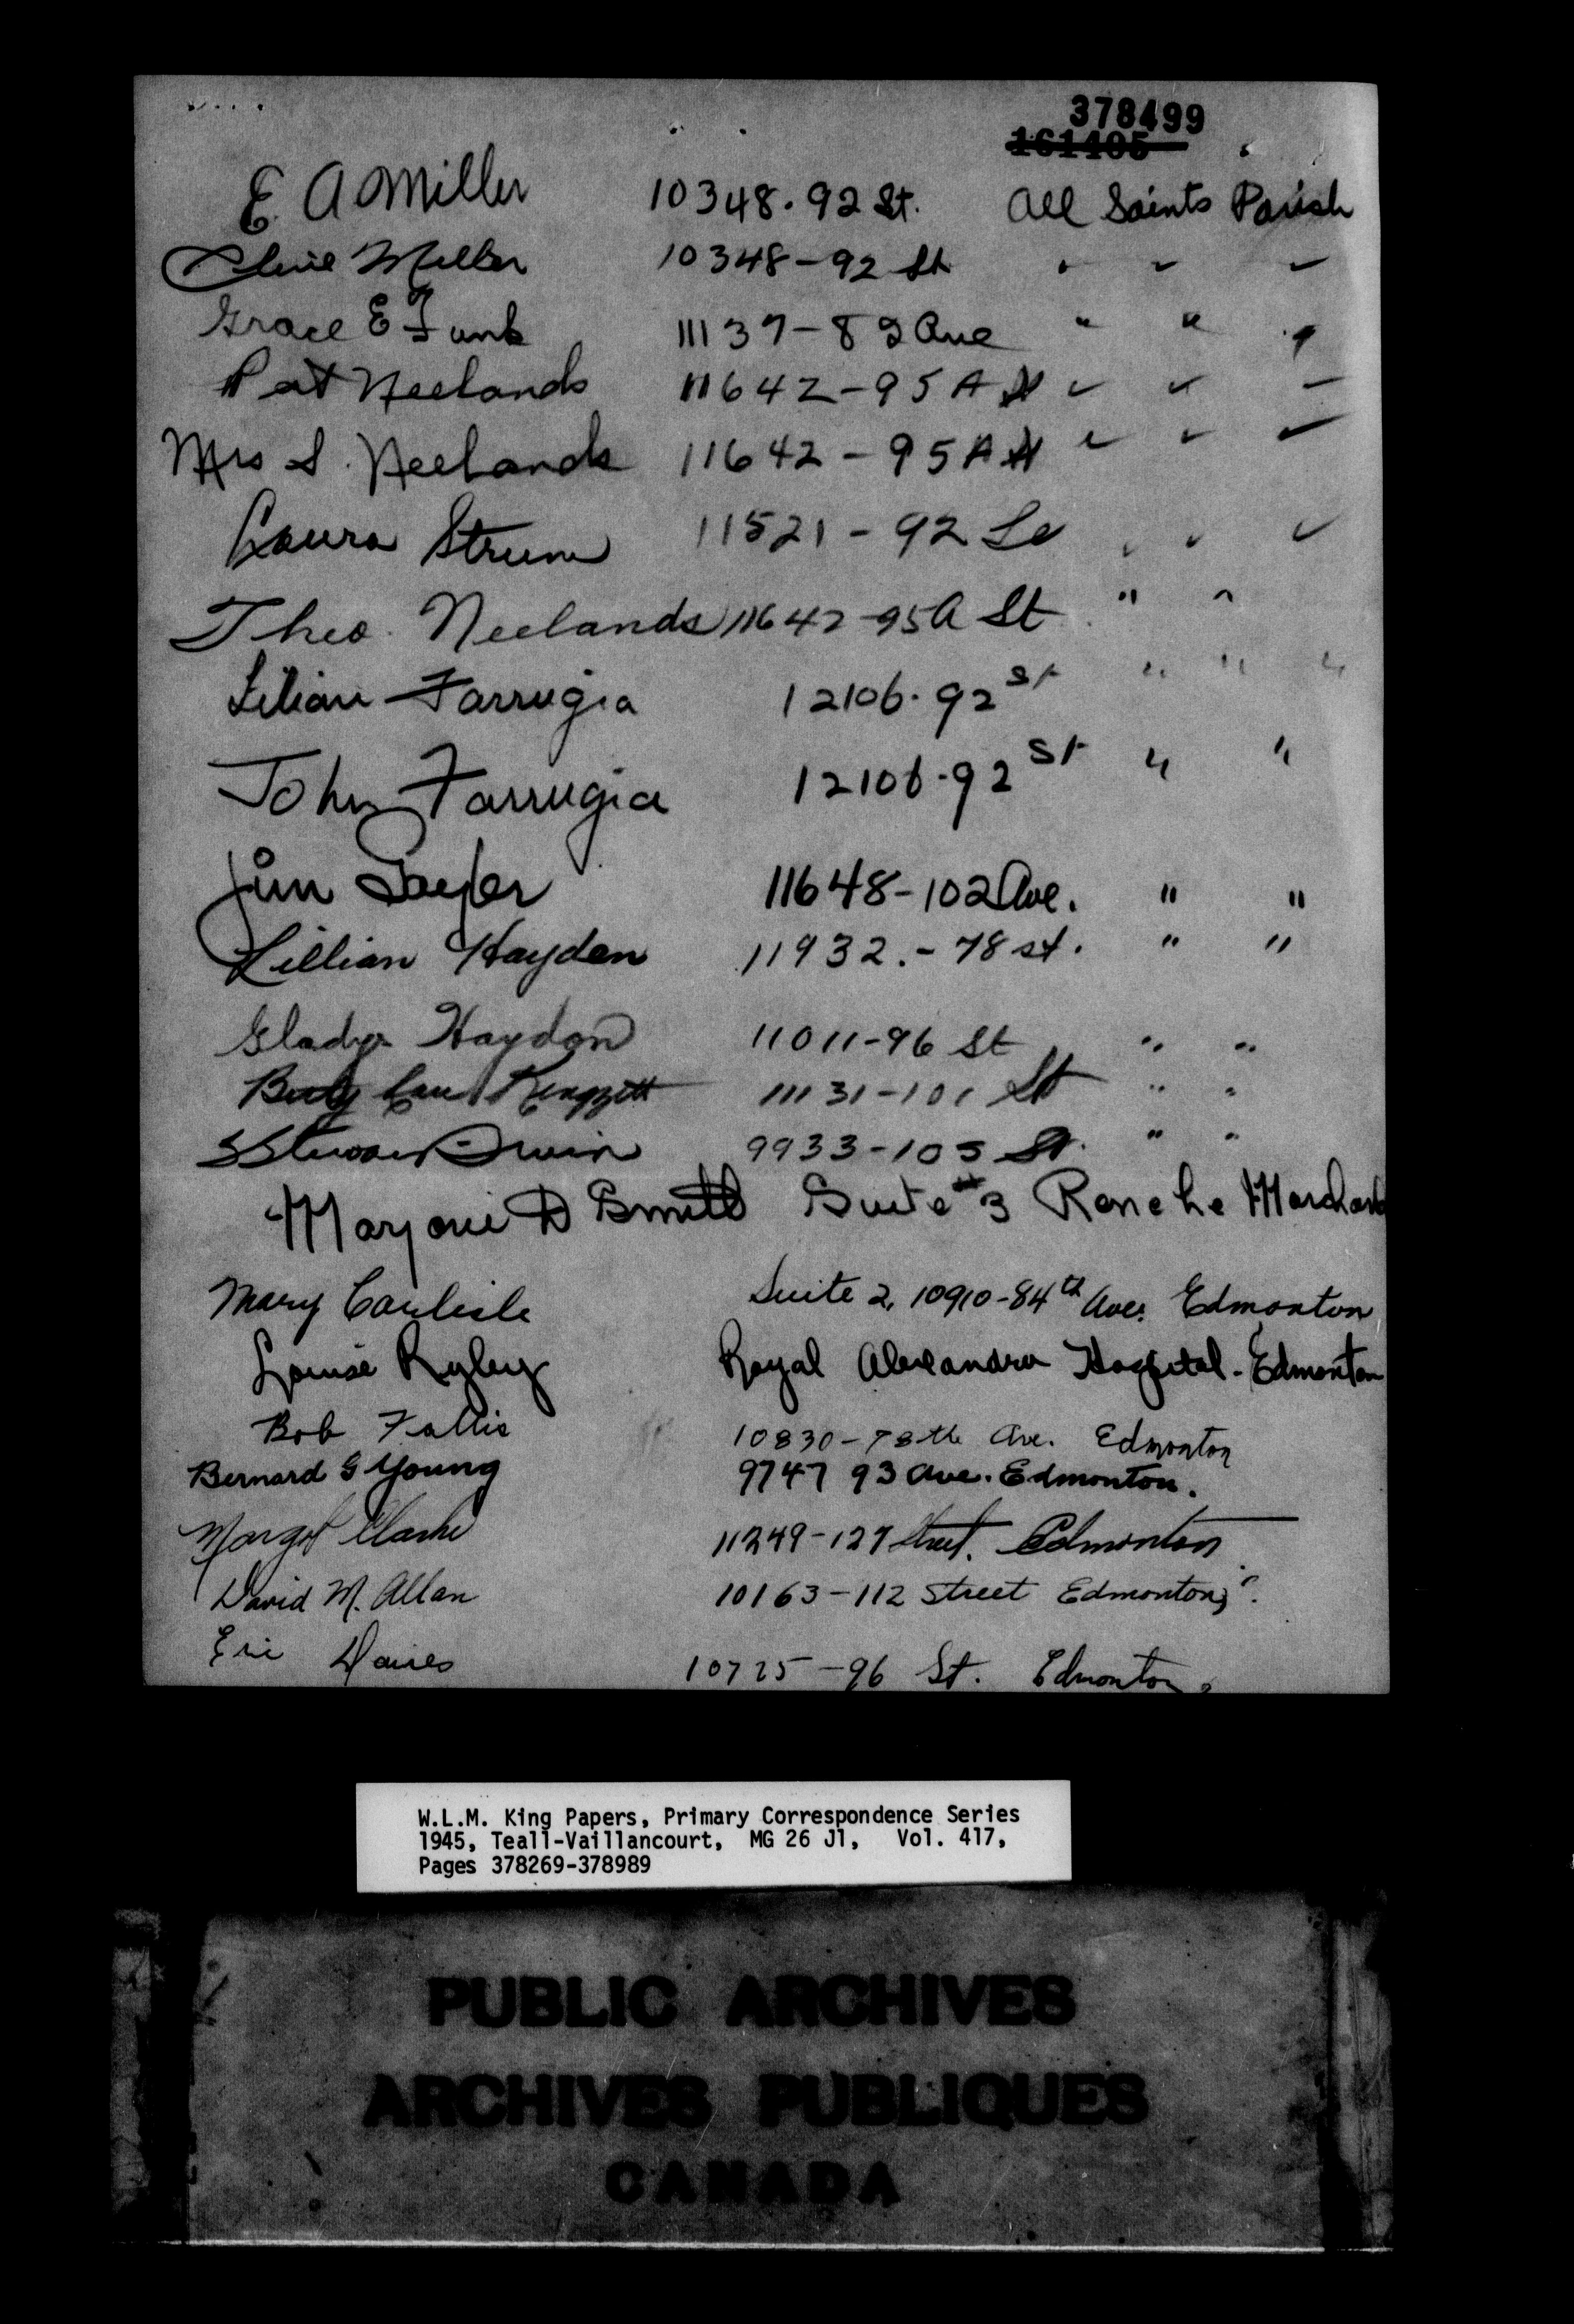 378499
161405
E. A Miller 10348. 92 St. All Saints Parish
Miller 10348-92 St " " "
Grace E Funk 11137-82 Ave " " "
Pat Neelands 11642-95A St " " "
Mrs S. Neelands 11642-95A St " " "
Laura Strum 11521-92 St " " "
Theo. Neelands 11642-95A St " "
Lilian Farrugia 12106. 92 St " " "
John Farrugia 12106. 92 St " "
Jim 11648-102 Ave. " "
Lillian Hayden 11932.-78 st. " "
Gladys Haydon 11011-96 St " "
11131-101 St " "
Irwin 9933-105 St. " "
Marjorie D Smith Suite #3 Marchand
Mary Carlisle Suite 2, 10910-84th Ave. Edmonton
Louise Ryley Royal Alexandra Hospital. Edmonton
Bob Fallis 10830-78th Ave. Edmonton
Bernard G Young 9747 93 Ave. Edmonton.
Margot Clarke 11249-127 Street. Edmonton
David M. Allan 10163-112 Street Edmonton,
Eric Davies 10725-96 St. Edmonton.
W.L.M. King Papers, Primary Correspondence Series
1945, Teall-Vaillancourt, MG 26 J1, Vol. 417,
Pages 378269-378989
PUBLIC ARCHIVES
ARCHIVES PUBLIQUES
CANADA